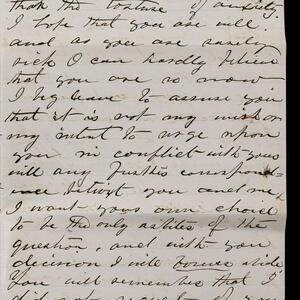 than the torture of anxiety.
I hope that you are well.
and as you are rarely
sick I can hardly believe
that you are so now
I beg leave to assure you
that it is not my wish or
my intent to urge upon
you in conflict with your
will any further correspond-
ence betwixt you and me,
I want your own choice
to be the only arbiter of the
question, and with you
decision I will abide
You will remember that I
did not